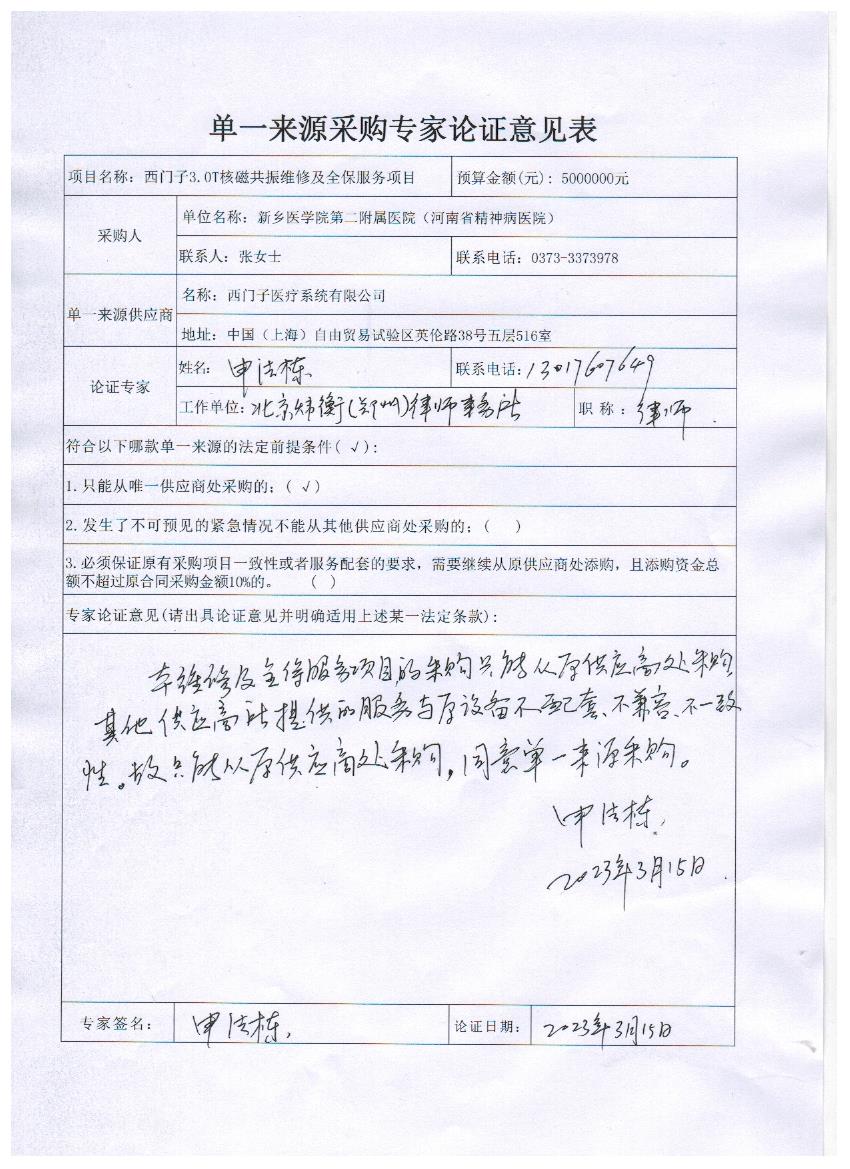 单一来源采购专家论证意见表
项目名称：西门子3.0T核磁共振维修及全保服务项目 预算金额(元)：5000000元
采购人
单位名称：新乡医学院第二附属医院（河南省精神病医院）
联系人：张女士 联系电话：0373-3373978
单一来源供应商
名称：西门子医疗系统有限公司
地址：中国（上海）自由贸易试验区英伦路38号五层516室
论证专家
姓名：申法栋 联系电话：13017607649
工作单位：北京炜衡(郑州)律师事务所 职称：律师
符合以下哪款单一来源的法定前提条件(√)：
1.只能从唯一供应商处采购的；(√)
2.发生了不可预见的紧急情况不能从其他供应商处采购的；( )
3.必须保证原有采购项目一致性或者服务配套的要求，需要继续从原供应商处添购，且添购资金总
额不超过原合同采购金额10%的。 ( )
专家论证意见(请出具论证意见并明确适用上述某一法定条款)：
本维修及全保服务项目的采购只能从原供应商处采购
其他供应商所提供的服务与原设备不配套、不兼容、不一致
性。故只能从原供应商处采购，同意单一来源采购。
申法栋
2023年3月15日
专家签名：申法栋 论证日期：2023年3月15日